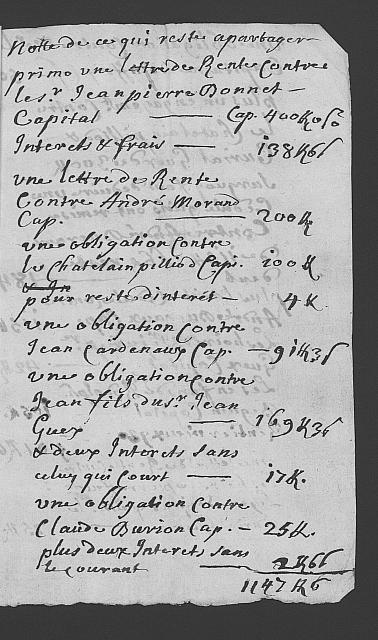 Notte de ce qui reste apartager
primo vne lettre de Rente Contre
le s.r Jean pierre Bonnet —
Capital —— Cap. 400
Interets & frais — 138
vne lettre de Rente
Contre André Morand
Cap. —— 200
vne obligation Contre
le Chatelain pilliod Capi. 100
pour reste d'interét — 4
vne obligation Contre
Jean Cardenaux Cap. — 91
vne obligation Contre
Jean fils du s.r Jean
Guex —— 169
& deux Interets sans
celuy qui Court — 17
vne obligation Contre
Claude Burzon Cap. — 25
plus deux Interets sans
le courant —— 2
1147